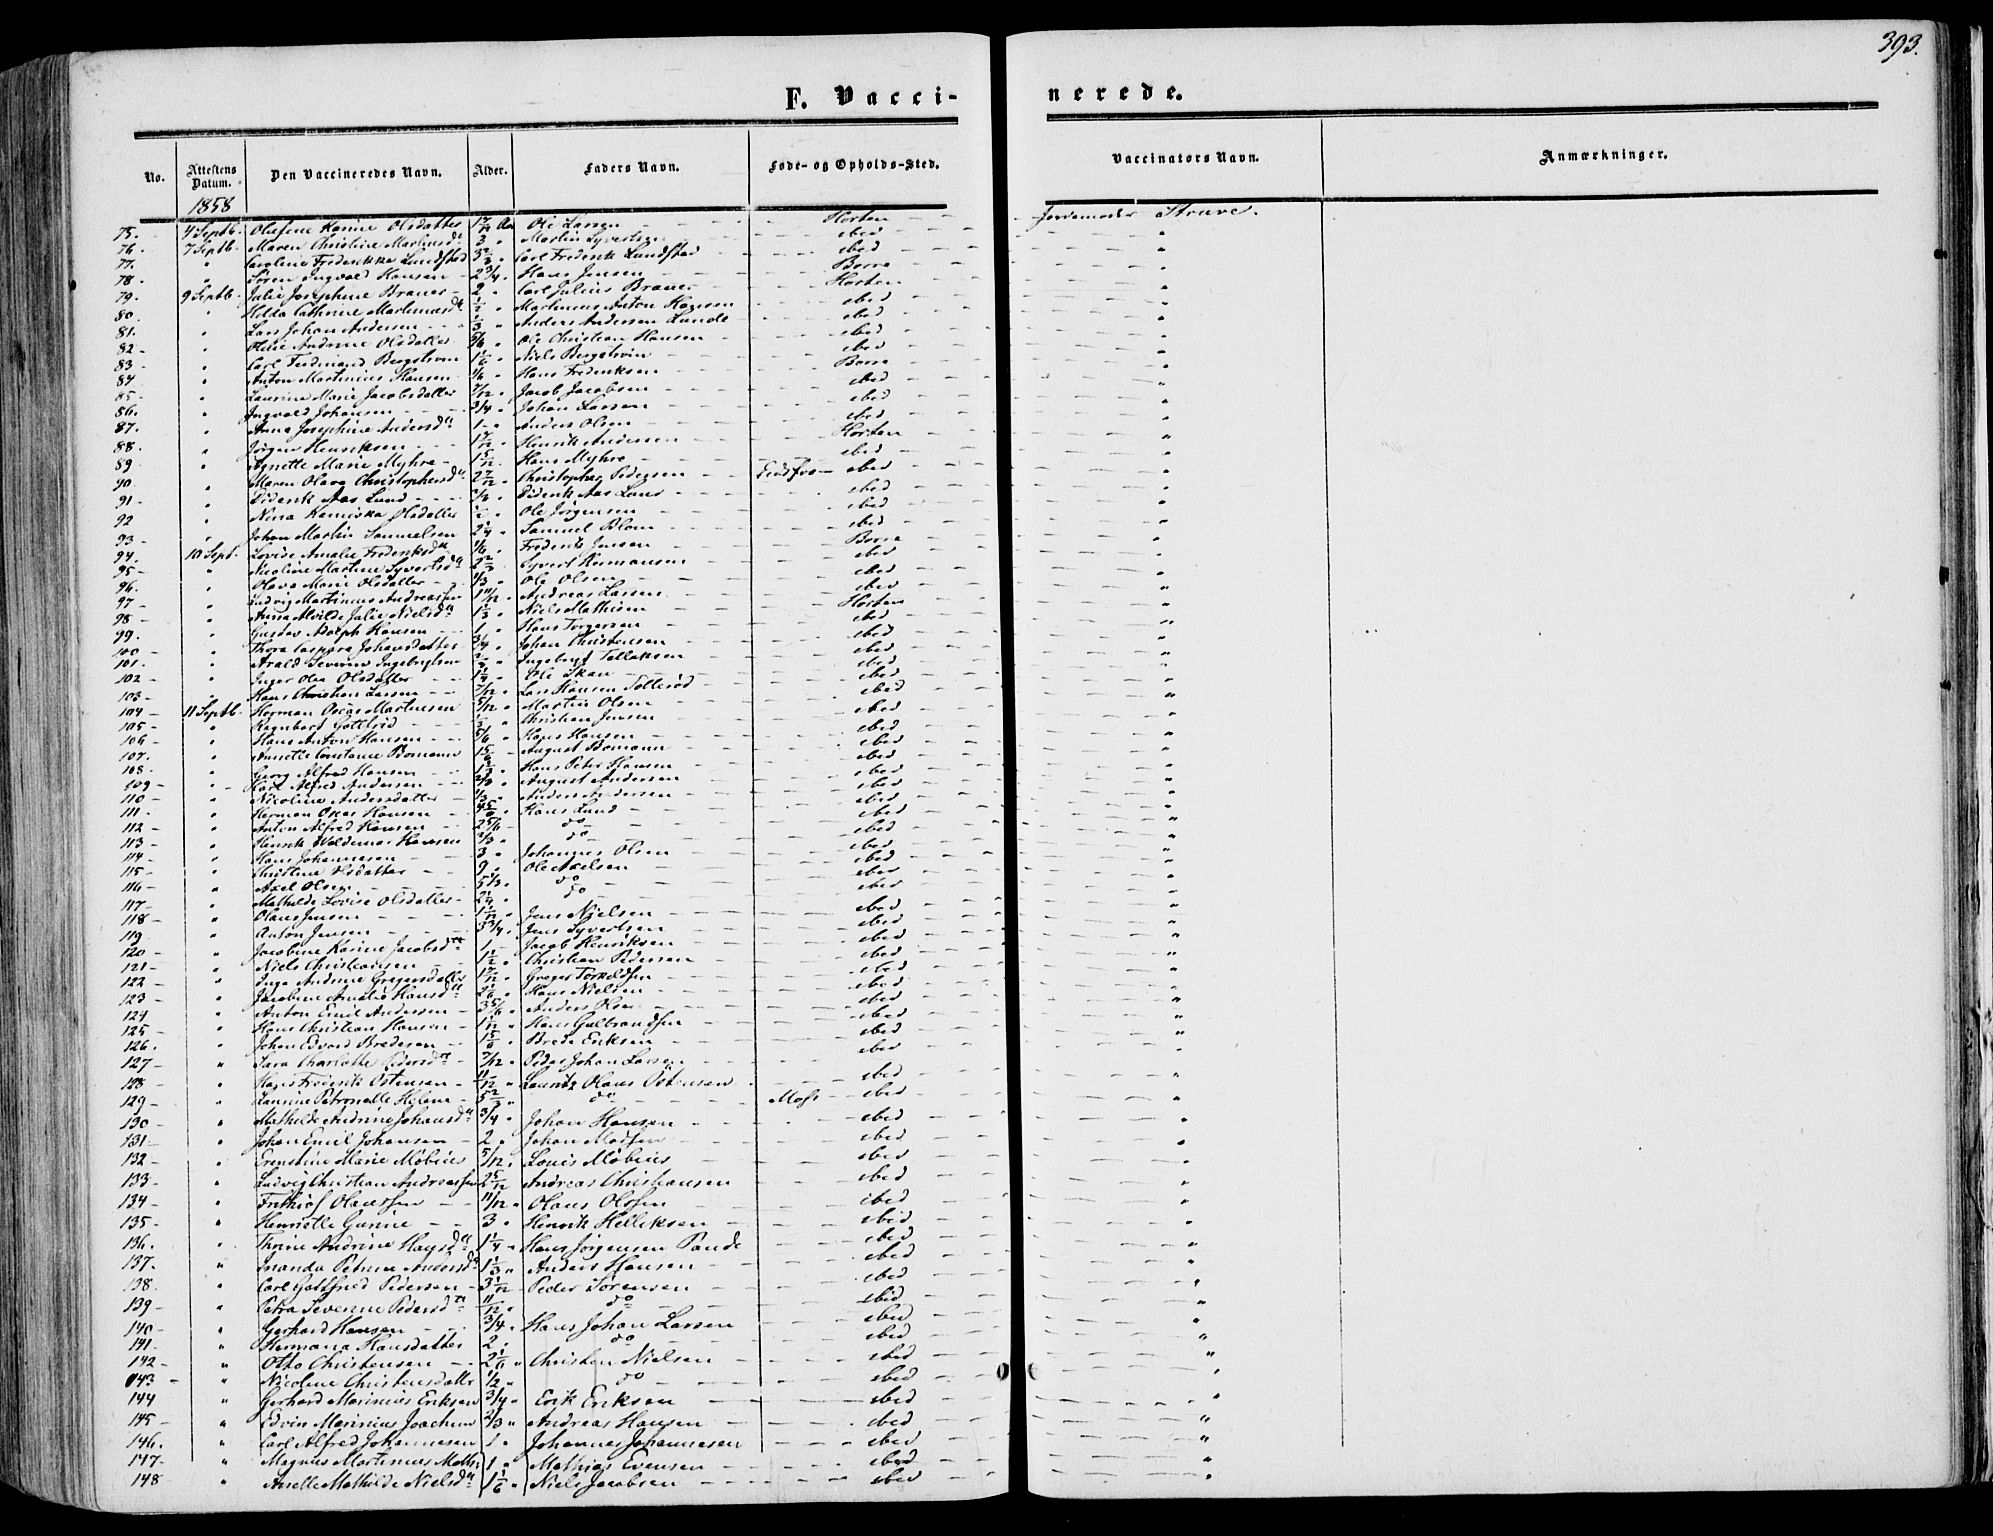 393.
F. Vacci- nerede.
No. Attestens Datum. Den Vaccineredes Navn. Alder. Faders Navn. Føde- og Opholds-Sted. Vaccinators Navn. Anmærkninger.
1858
75. 4 Septb. Olufine Karine Olsdatter 1 7/12 Ole Larsen Horten Jordemoder Struve.
76. 7 Septb. Maren Christine Martinsdr Martin Syvertsen ibid "
77. " Caroline Frederikke Lundstad Carl Frederik Lundstad ibid "
78. " Søren Ingvald Hansen 2 3/4 " Hans Jensen Borre "
79. 9 Septb. Julie Josephine Brauer 2 " Carl Julius Brauer Horten "
80. " Hilda Cathrine Martinusdr 1/2 " Martinus Anton Hansen ibid "
81. " Lars Johan Andersen Anders Andersen Lunde ibid "
82 " Oline Andrine Olsdatter 5/6 " Ole Christian Hansen ibid "
83 " Carl Ferdinand Bergstrøm 1 1/6 Niels Bergstrøm ibid "
84 " Anton Martinius Hansen 1/6 " Hans Frederiksen Borre "
85 " Laurine Marie Jacobsdatter 7/12 " Jacob Jacobsen ibid "
86. " Ingvald Johansen 3/4 " Johan Larsen ibid "
87. " Anna Josephine Andersdr 1 " Anders Olsen ibid "
88. " Jørgen Henriksen 1 7/12 " Henrik Andersen Horten "
89 " Agnette Marie Myhre 1 5/12 Hans Myhre ibid "
90. " Maren Olava Christophersdr 2 7/12 " Christopher Pedersen Eidsfos ibid "
91 " Diderik Aas Lund Diderik Aas Lund ibid "
92 " Nina Hansiska Olsdatter Ole Jørgensen ibid "
93 " Johan Martin Samuelsen 2 1/4 " Samuel Blom ibid "
94. 10 Sept. Lovise Amalie Frederiksdr 1/6 " Frederik Jensen Borre "
95 " Nicoline Martine Syvertsdr 2 2/3 " Syvert Hermansen ibid "
96. " Olava Marie Olsdatter 1/3 " Ole Olsen ibid "
97 " Ludvig Martinius Andreassen 1 11/12 " Andreas Larsen ibid "
98 " Anna Alvilde Julie Nielsdr 1 1/3 " Niels Mathisen Horten "
99. " Gustav Adolph Hansen 1 " Hans Torgersen ibid "
100 " Thora Caspara Johansdatter 3/4 " Johan Christensen ibid "
101. " Arald Severin Ingebrigtsen Ingebrigt Tellaksen ibid "
102 " Inger Olea Olsdatter 1 1/4 " Ole Skau ibid "
103 " Hans Christian Larsen 7/12 " Lars Hansen Tollerød ibid "
104 11 Septb. Herman Oscar Martinsen 5/12 " Martin Olsen ibid "
105 " Ragnbart Gottfrid Christian Jensen ibid "
106 " Hans Anton Hansen 5/6 " Hans Hansen ibid "
107. " Annette Constance Bomann August Bomann ibid "
108. " Georg Alfred Hansen Hans Peter Hansen ibid "
109 " Karl Alfred Andersen 2/3 " August Andersen ibid "
110 " Nicoline Andersdatter 1/3 " Anders Andersen ibid "
111. " Herman Oscar Hansen Hans Lund ibid "
112 " Anton Alfred Hansen 2 5/6 do ibid "
113 " Henrik Woldemar Hansen 2/3 " do ibid "
114 " Hans Johannesen 3 " Johannes Olsen ibid "
115 " Christine Olsdatter 9 " Ole Axelsen ibid "
116 " Axel Olsen 5 1/3 " do ibid "
117 " Mathilde Lovise Olsdatter 2 1/4 do ibid "
118 " Olaus Jensen 1 1/12 " Jens Nielsen ibid "
119 " Anton Jensen 3 3/4 " Jens Syvertsen ibid "
120 " Jacobine Karine Jacobsdr 1 " Jacob Henriksen ibid "
121 " Niels Christiansen 1 1/2 " Christian Pedersen ibid "
122 " Inga Andrine Gregersdatter 1 7/12 " Greger Torkeldsen ibid "
123 " Jacobine Amalie Hansdr 2 1/6 " Hans Nielsen ibid "
124 " Anton Emil Andersen 3 5/6 " Anders Olsen ibid "
125 " Hans Christian Hansen 1 1/12 " Hans Gulbrandsen ibid "
126. " Johan Edvard Bredesen 1 5/6 " Brede Eriksen ibid "
127 " Sara Charlotte Pedersdr 7/12 " Peder Johan Larsen ibid "
128 " Hans Frederik Østensen 11/12 " Lauritz Olaus Østensen ibid "
129 " Laurine Petronelle Helene 5 2/3 " do Moss ibid "
130 " Mathilde Andrine Johansdr 3/4 " Johan Hansen ibid "
131 " Johan Emil Johansen 2 " Johan Madsen ibid "
132 " Ernstine Marie Møbius 5/12 " Louis Møbius ibid "
133 " Ludvig Christian Andreassen 2 5/12 Andreas Christiansen ibid "
134 " Frithiof Olaussen 11/12 " Olaus Olssen ibid "
135 " Henriette Gurine 3 " Henrik Helliksen ibid "
136. " Thrine Andrine Hansdr 1 1/4 " Hans Jørgensen Pande ibid "
137. " Inanda Petrine Andersdr 1 1/3 " Anders Hansen ibid "
138. " Carl Gottfried Pedersen 3 1/12 Peder Sørensen ibid "
139 " Petra Severine Pedersdr 11/12 " do ibid "
140 " Gerhard Hansen 3/4 " Hans Johan Larsen ibid "
141. " Hermana Hansdatter 2 " do ibid "
142 " Otto Christensen 2 1/6 " Christen Nielsen ibid "
143 " Nicoline Christensdatter 1/2 " do ibid "
144 " Gerhard Marinius Eriksen 3/4 " Erik Eriksen ibid "
145 " Edvin Marinius Joachim 2/3 " Andreas Hansen ibid "
146. " Carl Alfred Johannesen 1 " Johannes Johannesen ibid "
147 " Magnus Martinius 1 " Mathias Evensen ibid "
148 " Anselle Mathilde Nielsdr 1 1/6 " Niels Jacobsen ibid "